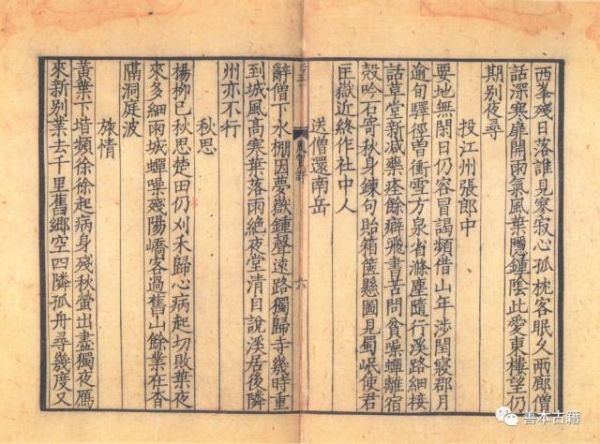 西峯殘日落誰見寥寂心孤枕客眠久兩廊僧
話深寒扉開雨氣風葉隱鍾陰此愛東樓望仍
期別夜尋
投江州張郎中
要地無閑日仍容冒謁頻借山年涉閏寢郡月
逾旬驛徑曾衝雪方泉省滌塵隨行溪路細接
話草堂新減藥痊餘癖飛書苦問貧噪蟬離宿
殼吟石寄秋身鍊句貽箱篋懸圖見蜀岷使君
匡嶽近終作社中人
送僧還南岳
辭僧下水棚因夢嶽鍾聲遠路獨歸寺幾時重
到城風高寒葉落雨絕夜堂清目說溪居後隣
州亦不行
六
秋思
楊柳已秋思楚田仍刈禾歸心病起切敗葉夜
來多細雨城蟬噪殘陽嶠客過舊山餘業在杳
隔洞庭波
旅情
黃葉下堦頻徐徐起病身殘秋螢出盡獨夜鴈
來新別業去千里舊鄉空四隣孤舟尋幾度又
善本古籍